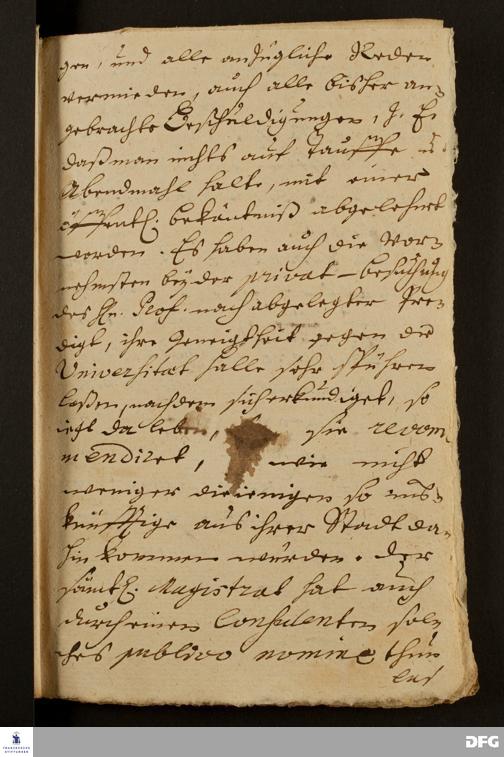 gen, und alle anzügliche Reden
vermieden, auch alle bisher an-
gebrachte Beschuldigungen, z. E.
daß man nichts auf Tauffe u.
Abendmahl halte, mit einer
öffentl. bekäntniß abgelehnet
worden. Es haben auch die Vor-
nehmsten bey der privat-besuchung
des Hn. Prof. nach abgelegter Pre-
digt, ihre Geneigtheit gegen die
Universitæt Halle sehr spühren
laßen, nachdem sich erkundiget, so
ietzt da leben, sie recom-
mendiret, wie nicht
weniger dieienigen so ins-
künfftige aus ihrer Stadt da-
hin kommen würden. Der
sämtl. Magistrat hat auch
durch einen Consulenten sol-
ches publico nomine thun
laß
FRANCKESCHE STIFTUNGEN
DFG